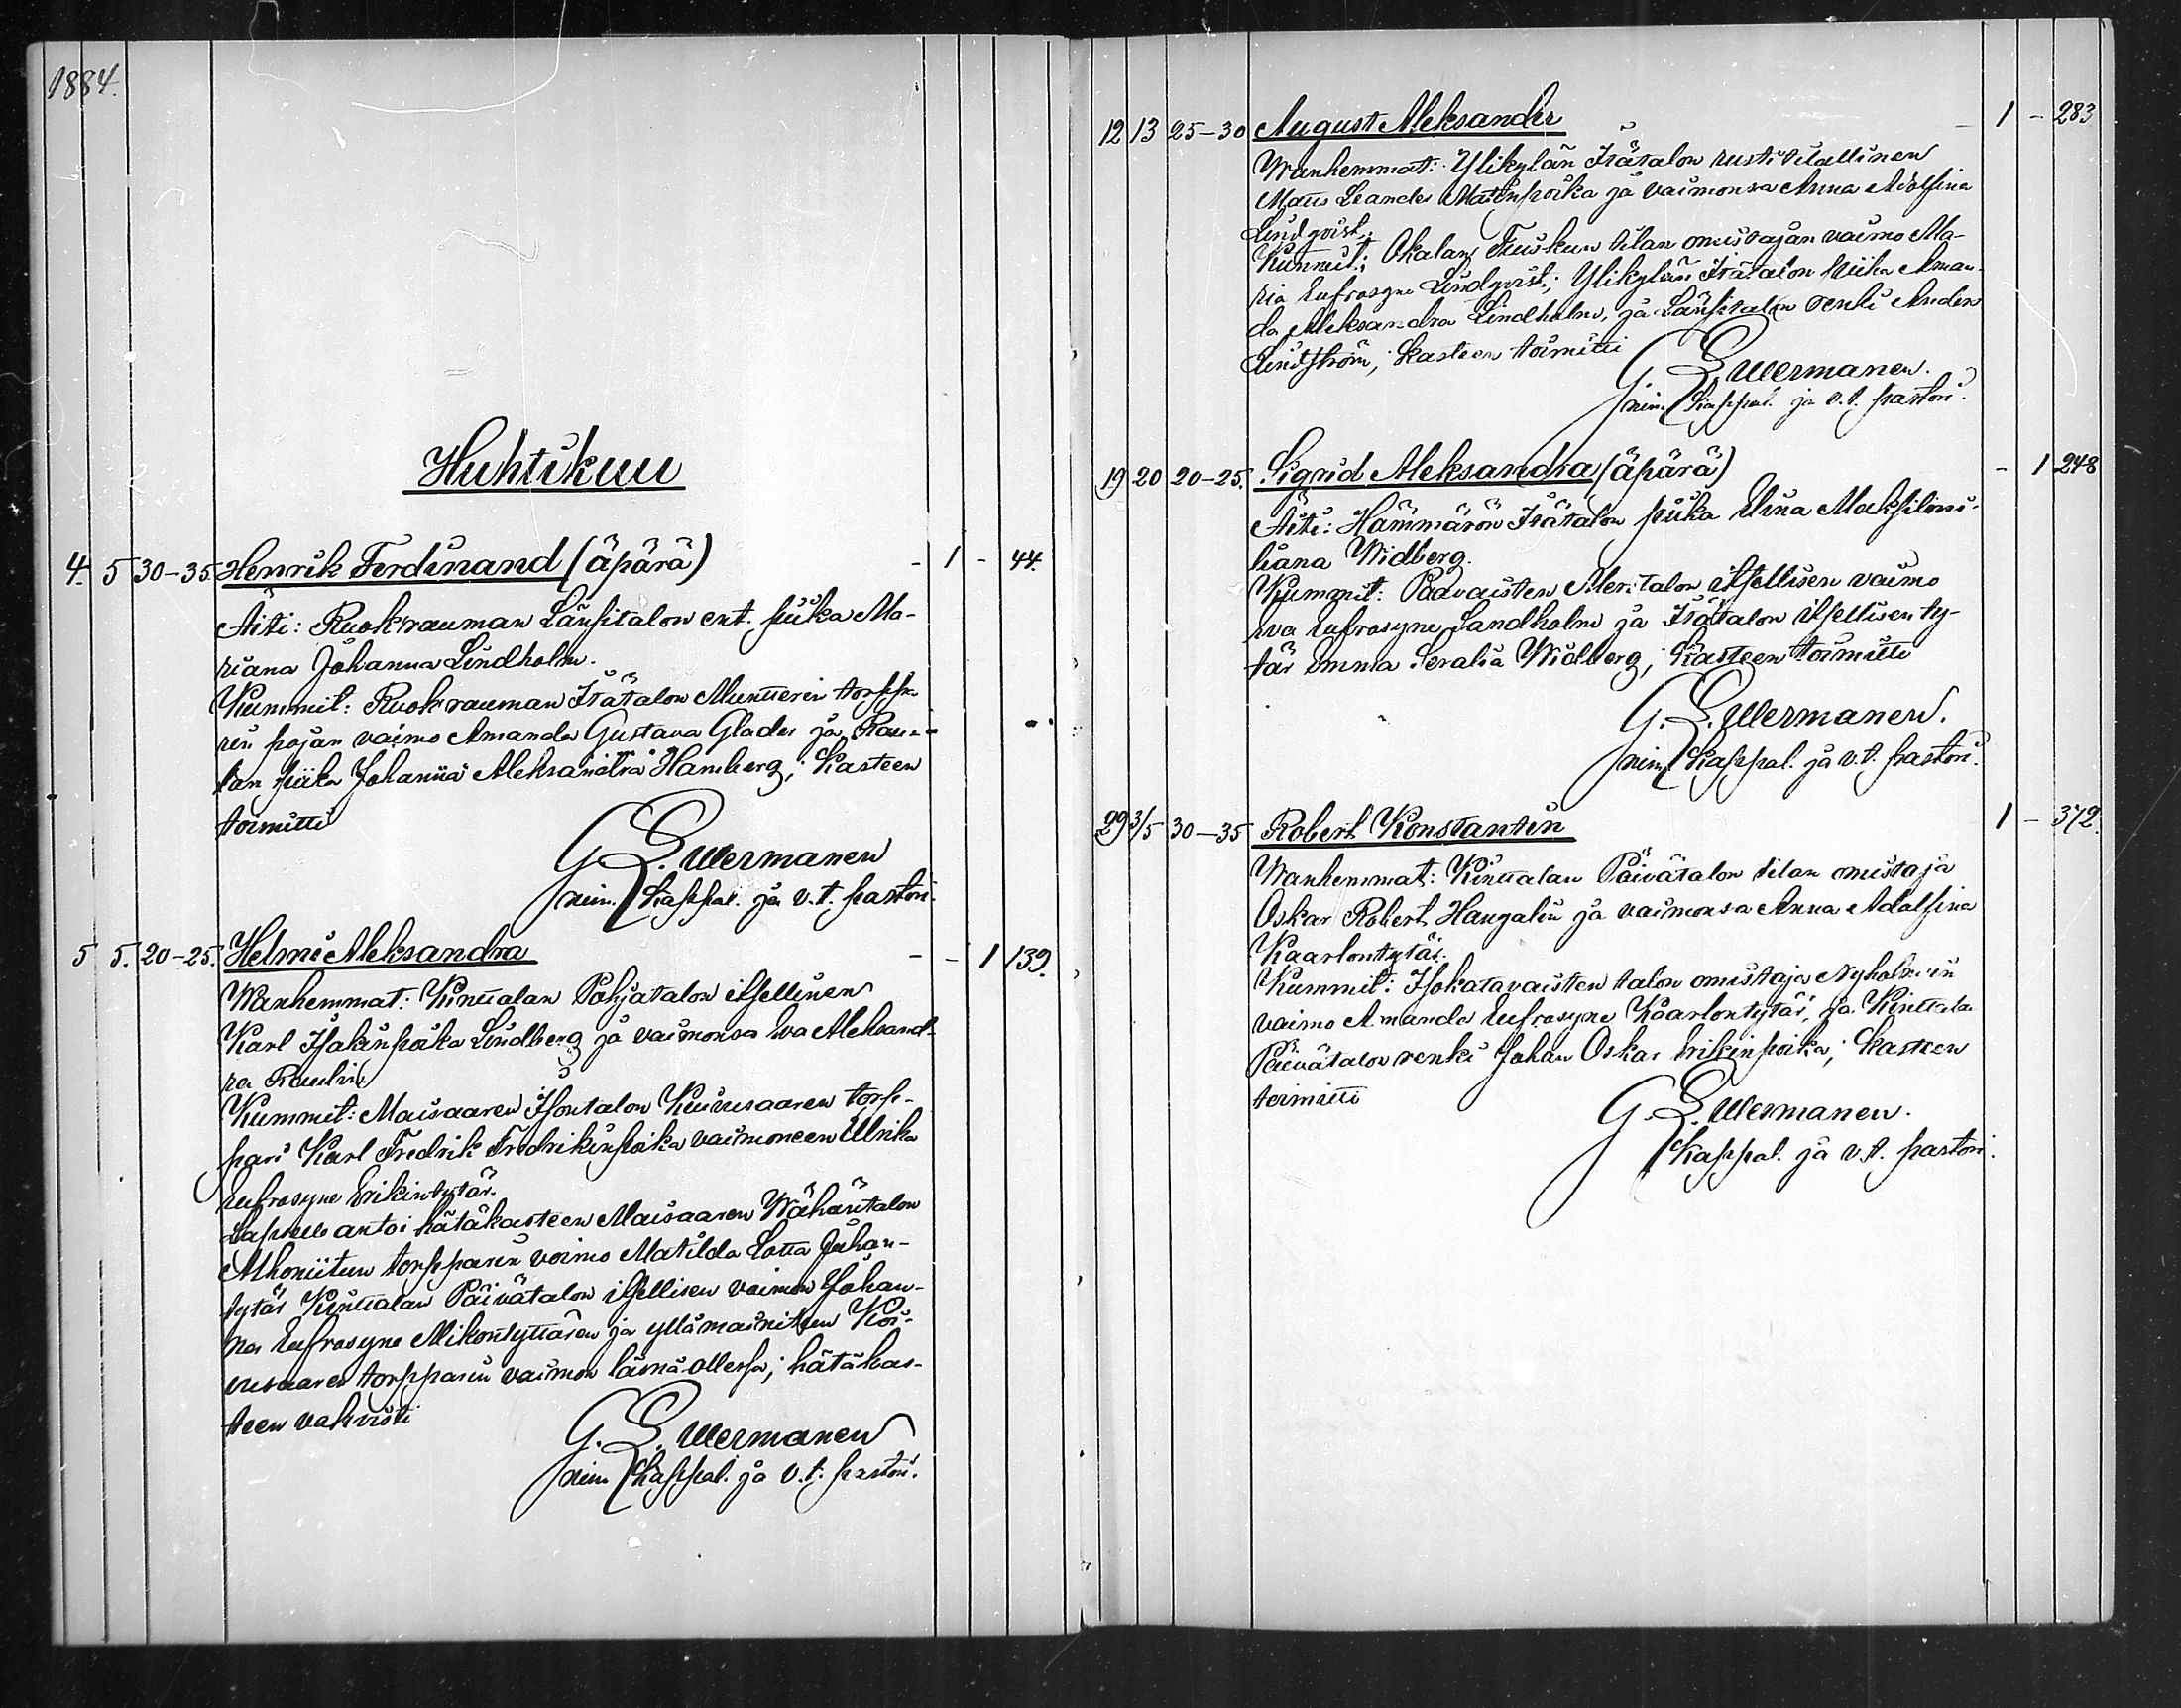 1884.
Huhtikuu
4. 5 30-35. Henrik Ferdinand (äpärä) - 1 - 44.
Äiti: Ruokrauman Länsitalon ent. piika Ma-
riana Johanna Lindholm.
Kummit: Ruokrauman Itätalon Muntterin torppa-
rin pojan vaimo Amanda Gustava Glader ja Rau-
lan piika Johanna Aleksandra Hamberg; Kasteen
toimitti
G. L. Wermanen
nim. Kappal. ja v.t. pastori.
5 5. 20-25. Helmi Aleksandra - - 1 139.
Wanhemmat: Kinttalan Pohjatalon itsellinen
Karl Isakinpoika Lindberg ja vaimonsa Eva Aleksand-
ra Paulin
Kummit: Maisaaren Isontalon Kuivusaaren torp-
pari Karl Fredrik Fredrikinpoika vaimoneen Ulrika
Eufrosyne Erikintytär.
Lapselle antoi hätäkasteen Maisaaren Wähäntalon
Alhoniitun torpparin vaimo Matilda Lotta Juhan-
tytär Kinttalan Päivätalon itsellisen vaimon Johan-
na Eufrosyne Mikontyttären ja yllämainitun
torpparin vaimon läsnä ollessa; hätäkas-
teen vahvisti
G. L. Wermanen
nim. Kappal. ja v.t. pastori.
12 13 25-30 August Aleksander - 1 - 283
Wanhemmat: Ylikylän Itätalon rustitilallinen
Maus Leander Matinpoika ja vaimonsa Anna Adolfina
Lindqvist;
Kummit; Okalan Tuiskun tilan omistajan vaimo Ma-
ria Eufrosyne Lindqvist; Ylikylän Itätalon piika Aman-
da Aleksandra Lindholm, ja Länsitalon renki Anders
Lindström; Kasteen toimitti
G. L. Wermanen.
nim. Kappal. ja v.t. pastori.
19 20 20-25. Sigrid Aleksandra (äpärä) - 1 248
Äiti: Hämmärön Itätalon piika Elina Maksilimi-
liana Widberg.
Kummit: Paavaisten Meritalon itsellisen vaimo
Eva Eufrosyne Sandholm ja Itätalon itsellisen ty-
tär Emma Seralia Widberg; Kasteen toimitti
G. L. Wermanen.
nim. Kappal. ja v.t. pastori.
29 3/5 30-35 Robert Konstantin 1 - 372.
Wanhemmat: Kinttalan Päivätalon tilan omistaja
Oskar Robert Haugalin ja vaimonsa Anna Adolfina
Kaarlontytär.
Kummit: Isokatavaisten talon omistaja Nyholmin
vaimo Amanda Eufrosyne Kaarlontytär, ja Kinttala
Päivätalon renki Johan Oskar Erikinpoika; Kasteen
toimitti
G. L. Wermanen.
Kappal. ja v.t. pastori.